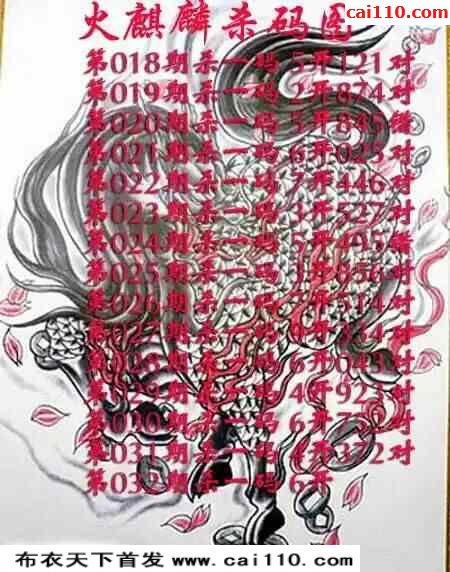 cai110.com
火麒麟杀码图
第018期杀一码 5开121对
第019期杀一码 2开874对
第020期杀一码 5开845错
第021期杀一码 6开025对
第022期杀一码 7开446对
第023期杀一码 3开527对
第024期杀一码 5开495错
第025期杀一码 开856对
第026期杀一码 开514对
第027期杀一码 开 对
第028期杀一码 6开043对
第029期杀一码 4开923对
第030期杀一码 6开 对
第031期杀一码 4开372对
第032期杀一码 6开
布衣天下首发 www.cai110.com